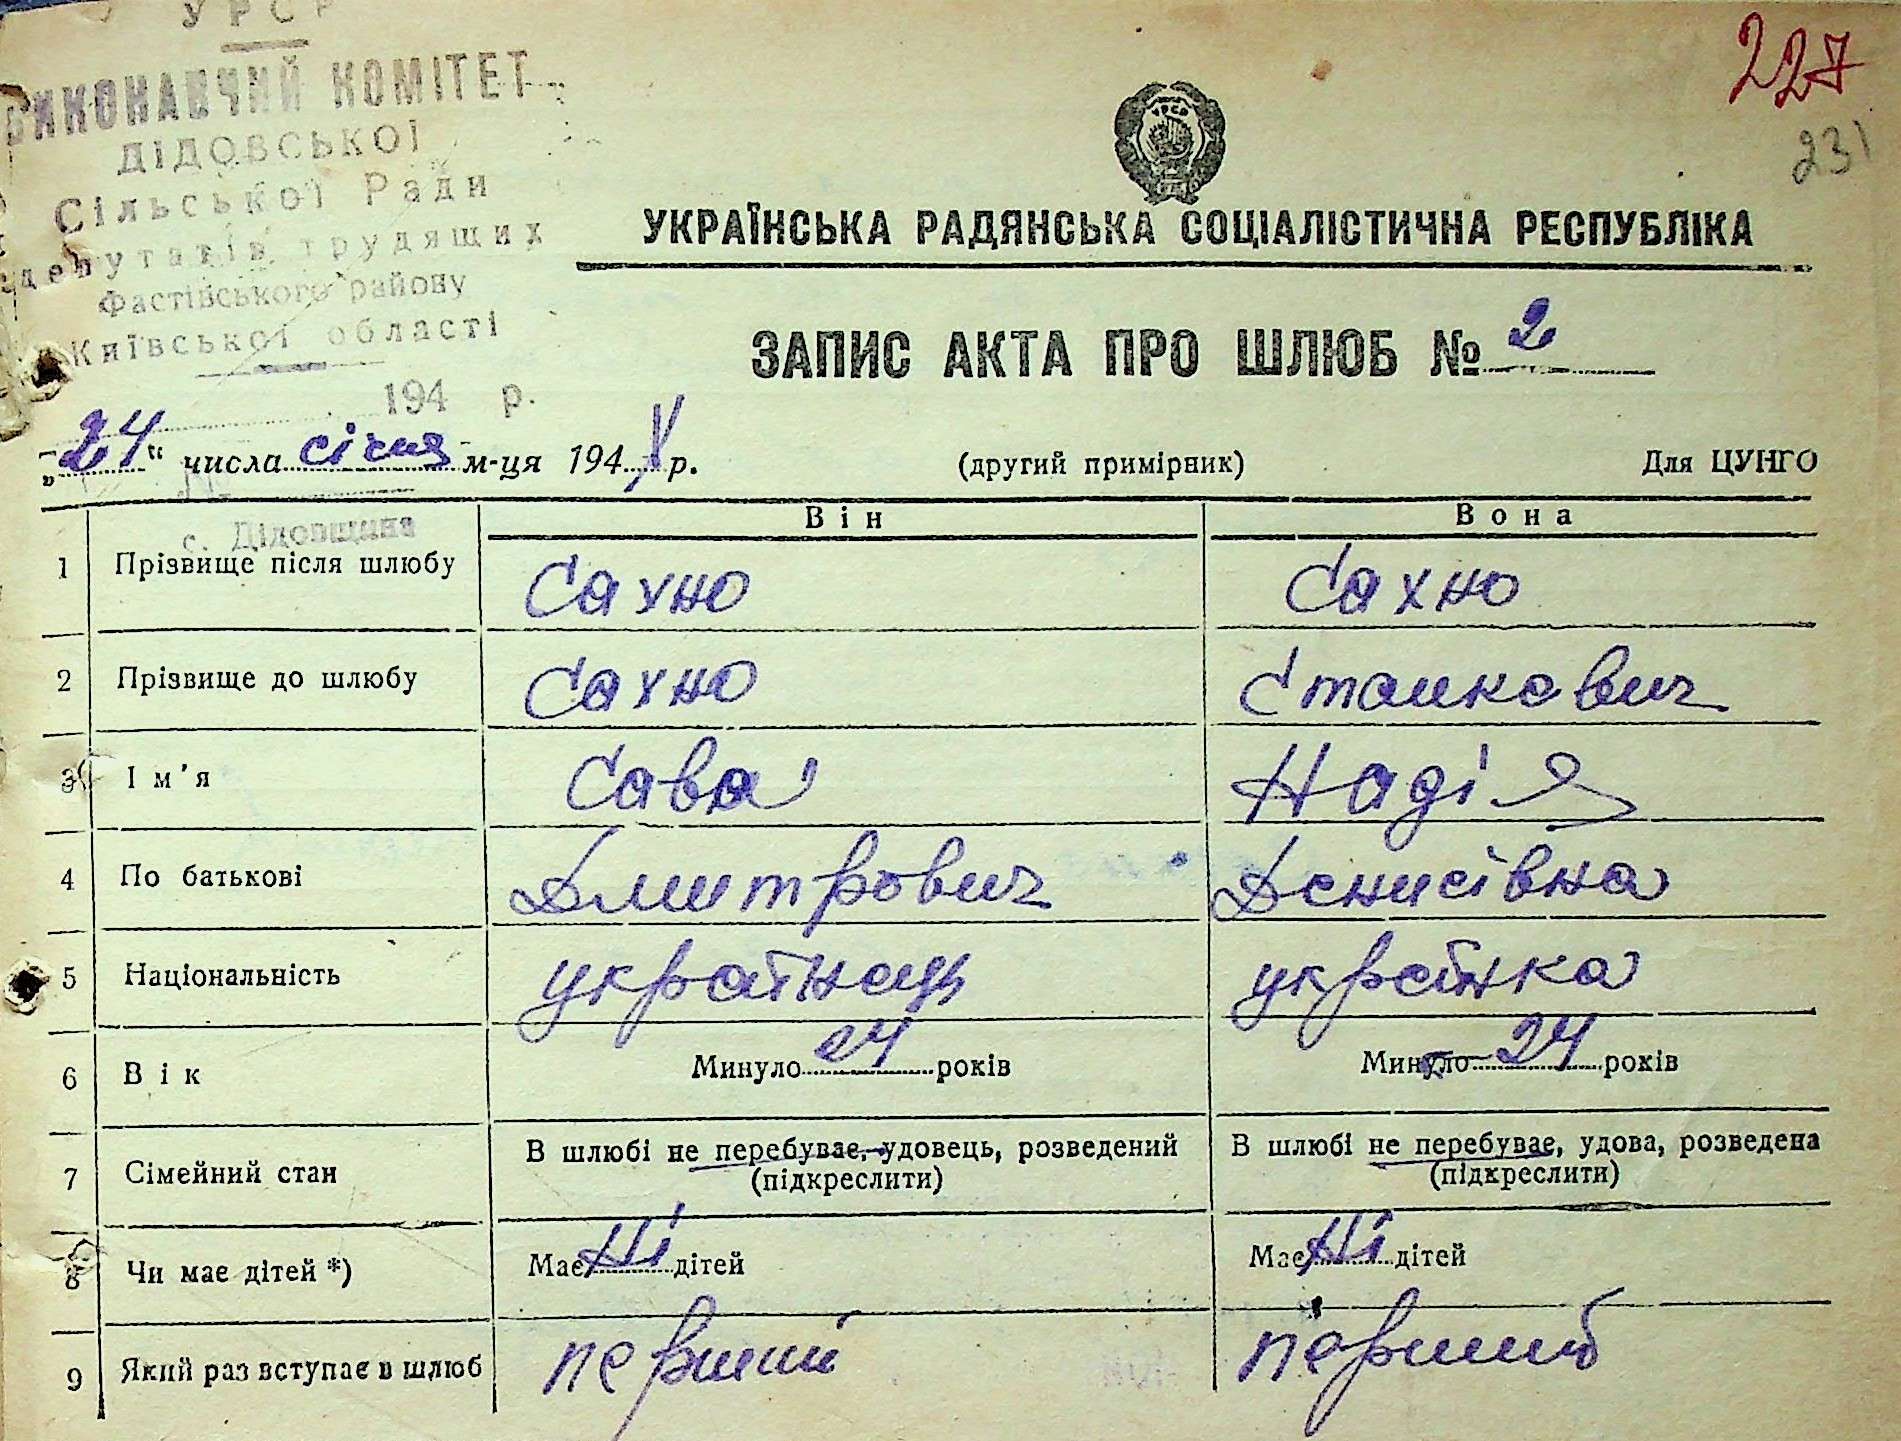 УРСР
ВИКОНАВЧИЙ КОМІТЕТ
ДІДОВСЬКОЇ
Сільської Ради
депутатів трудящих
Фастівського району
Київської області
194 р.
№
с. Дідовщина
227
231
УРСР
УКРАЇНСЬКА РАДЯНСЬКА СОЦІАЛІСТИЧНА РЕСПУБЛІКА
ЗАПИС АКТА ПРО ШЛЮБ № 2
„24“ числа січня м-ця 194 р.
(другий примірник)
Для ЦУНГО
Він Вона
1 Прізвище після шлюбу Сахно Сахно
2 Прізвище до шлюбу Сахно Станкович
3 Ім'я Сава Надія
4 По батькові Дмитрович Денисівна
5 Національність українець українка
6 Вік Минуло 24 років Минуло 24 років
7 Сімейний стан В шлюбі не перебуває, удовець, розведений В шлюбі не перебуває, удова, розведена
(підкреслити) (підкреслити)
8 Чи має дітей *) Має Ні дітей Має Ні дітей
9 Який раз вступає в шлюб перший перший